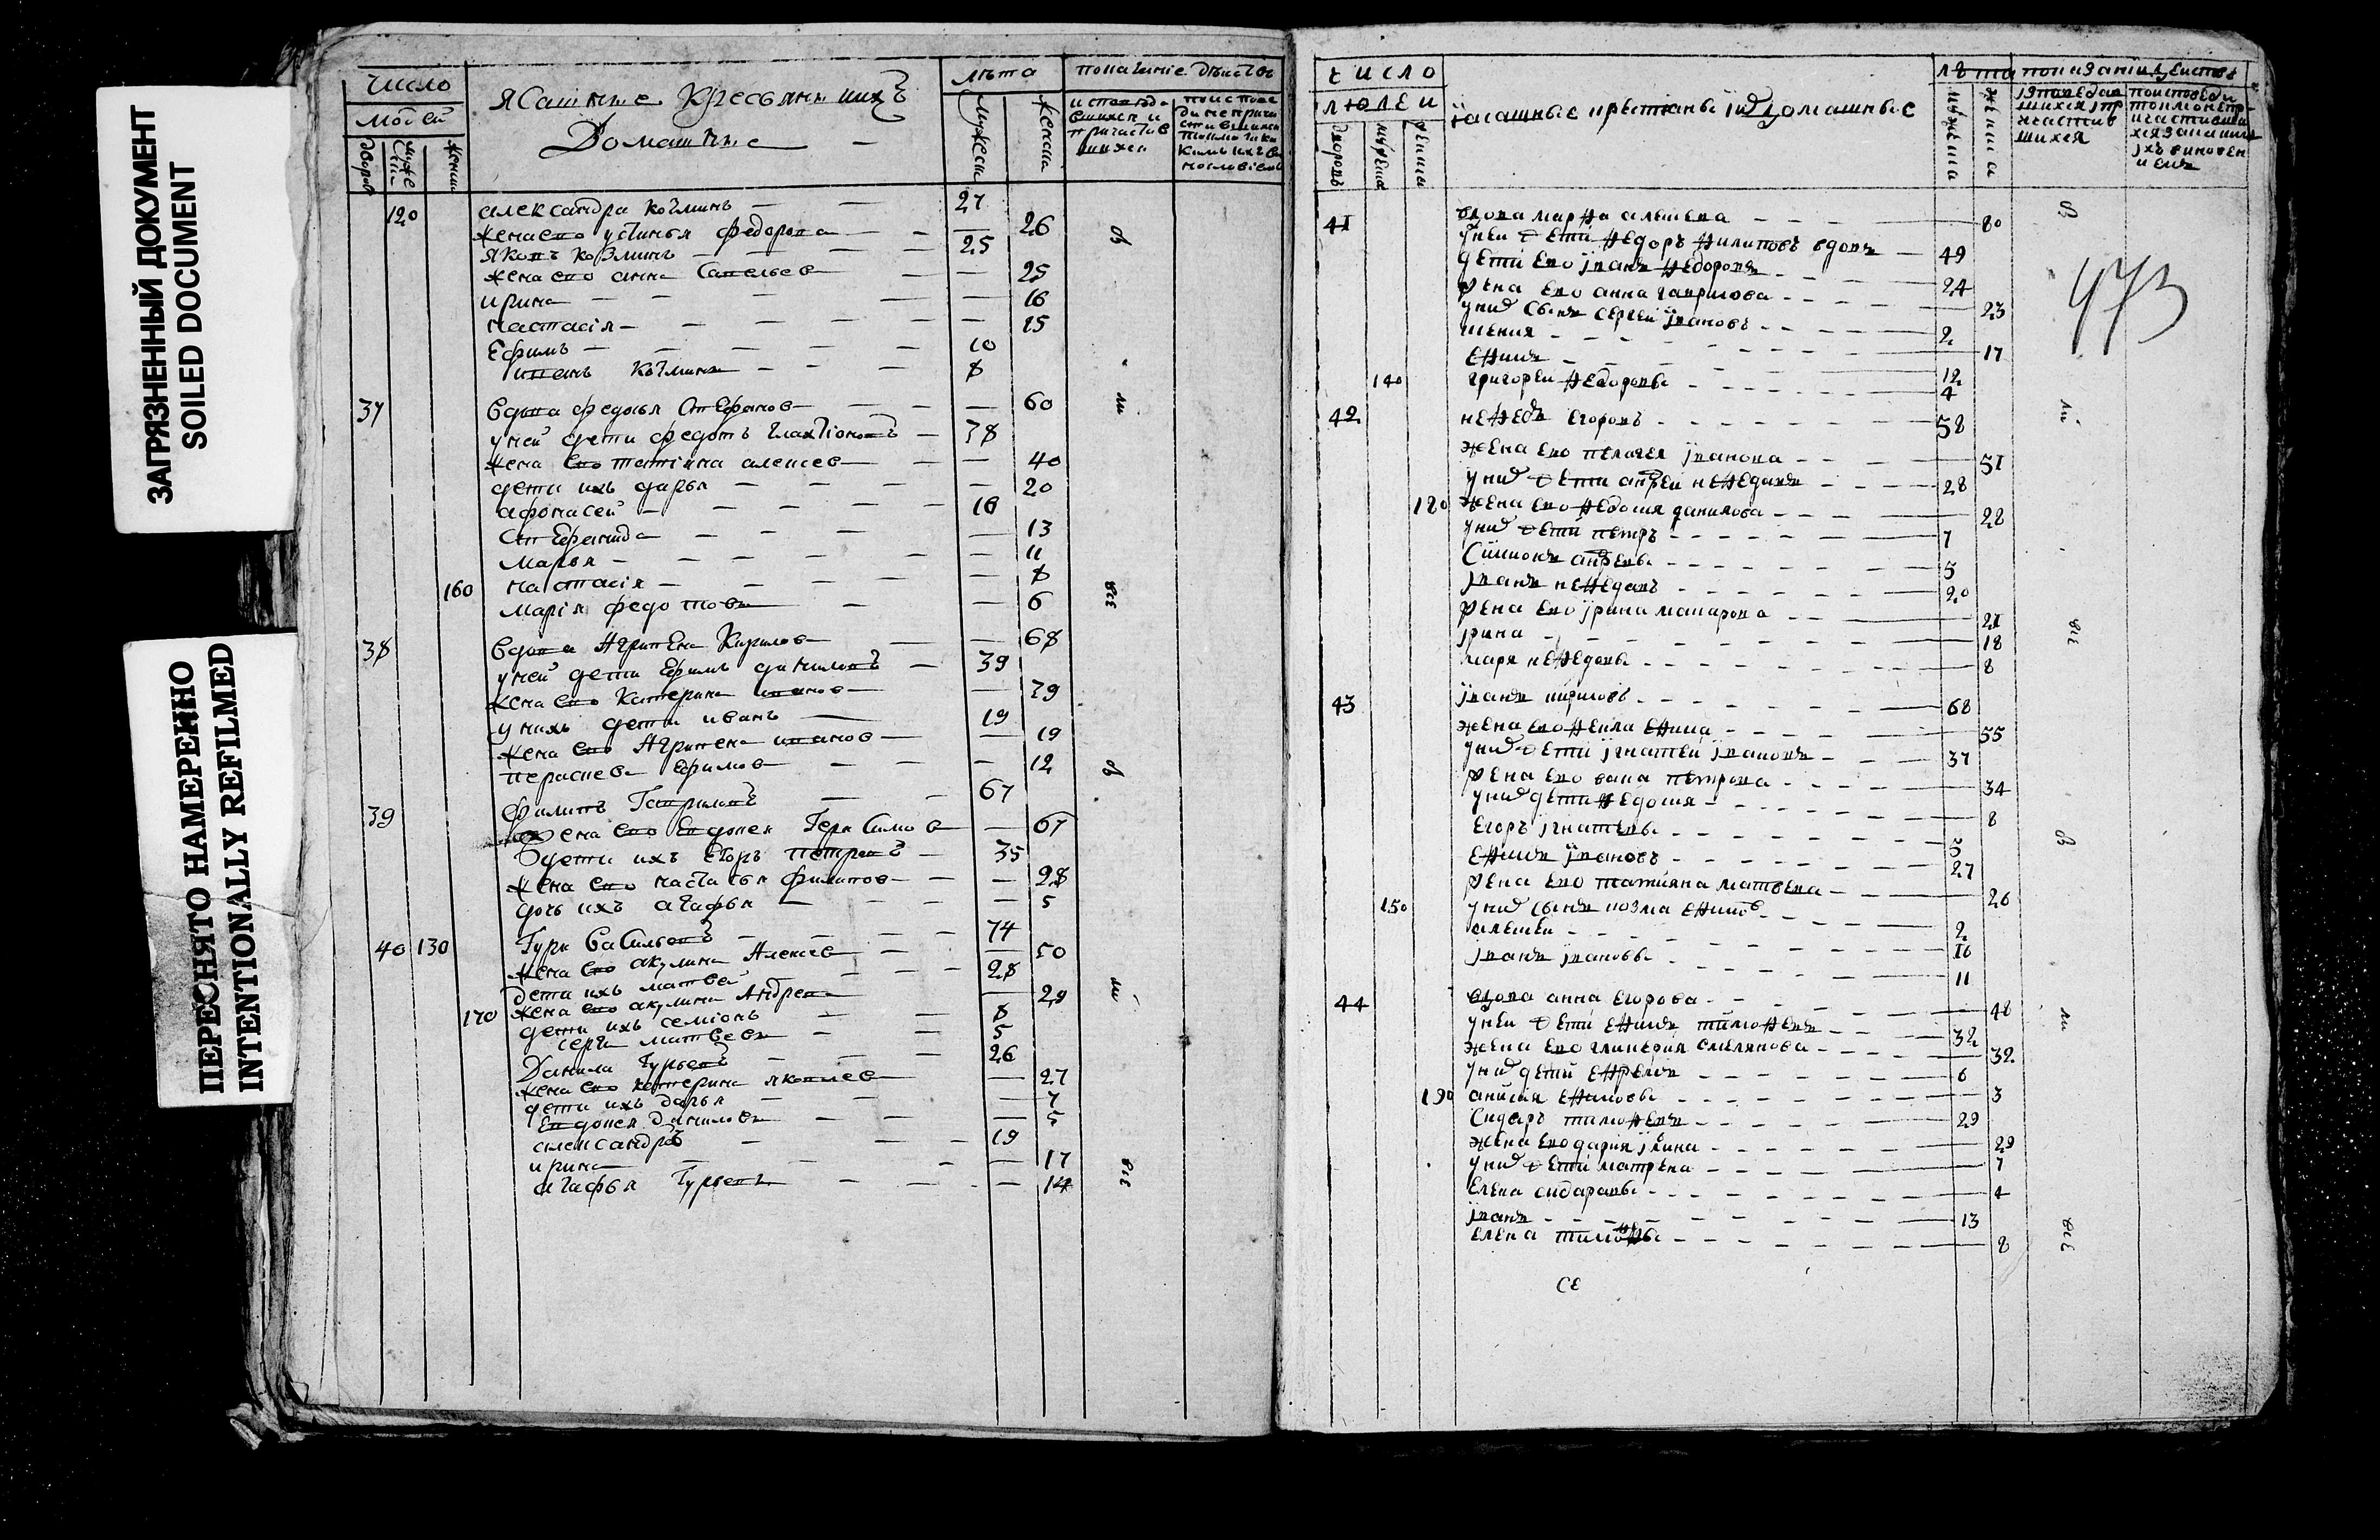 ЗАГРЯЗНЕННЫЙ ДОКУМЕНТ
SOILED DOCUMENT
ПЕРЕСНЯТО НАМЕРЕННО
INTENTIONALLY REFILMED
число
людей
дворов
мужеска
женска
ясашные крестьяне ихъ
Домашние
лѣта
мужеска
женска
показание действъ
120 александра козминъ — 27
жена ево устинья федорова — 26
яковъ козминъ — 25
жена ево анна савельев — 25
ирина — 16
настасія — 15
Ефимъ — 10
иванъ козмины — 8
37 вдова федосья Стефанов — 60
у ней дети федотъ галахтіоновъ — 38
жена ево татіяна алексев — 40
дети ихъ дарья — 20
афонасей — 16
Стефанида — 13
Марья — 11
160 настасія — 8
марія федотовы — 6
38 вдова Агрипена Кирилов — 68
у ней дети Ефимъ даниловъ — 39
жена ево Катерина иванов — 39
у нихъ дети иванъ — 19
жена ево Агрипена иванов — 19
пераскева Ефимов — 12
39 филипъ Гавриловъ — 67
жена ево Евдокея Герасимов — 67
дети ихъ Егоръ петровъ — 35
жена ево настасья филипов — 28
дочь ихъ агафья — 5
40 130 Гури Васильевъ — 74
жена ево акулина Алексев — 50
дети ихъ матвей — 28
170 жена ево акулина Андреева — 29
дети ихъ семіонъ — 8
серги матвеевы — 5
Данила Гурьевъ — 26
жена ево катерина яковлев — 27
дети ихъ дарья — 7
Евдокея данилов — 5
александръ — 19
ирина — 17
агафья Гурьевы — 14
въ
ли
всѣ
число
людеи
дворовъ
ясашные крестьяне ихъ домашные
лѣта
показания действъ
473
41 вдова марфа алексеева — 80
у неи дети федоръ филиповъ вдовъ — 49
дети ево иванъ федоровъ — 24
жена ево анна гаврилова — 23
у них сынъ сергеи ивановъ — 2
ксения — 17
ефимъ — 12
140 григореи федоровы — 4
42 нефедъ егоровъ — 58
жена ево пелагея иванова — 51
у них дети андреи нефедовъ — 28
180 жена ево федосия данилова — 22
у них дети петръ — 7
Симионъ андреевы — 5
иванъ нефедовъ — 20
жена ево ирина макарова — 21
ирина — 18
маря нефедовы — 8
43 иванъ кириловъ — 68
жена ево фекла ефима — 55
у них дети игнатеи ивановъ — 37
жена ево васа петрова — 34
у них дети федосия — 8
егоръ игнатевы — 5
ефимъ ивановъ — 27
жена ево татияна матвева — 26
150 у них сынъ козма ефимовъ — 2
алексеи — 16
иванъ ивановы — 11
44 вдова анна егорова — 48
у неи дети ефимъ тимофеевъ — 32
жена ево гликерия емелянова — 32
у них дети ефремъ — 6
190 анисия ефимовы — 3
Сидаръ тимофеевъ — 29
жена ево дария илина — 29
у них дети матрена — 7
елена сидаравы — 4
иванъ — 13
елена тимофеевы — 8
въ
ли
всѣ
се